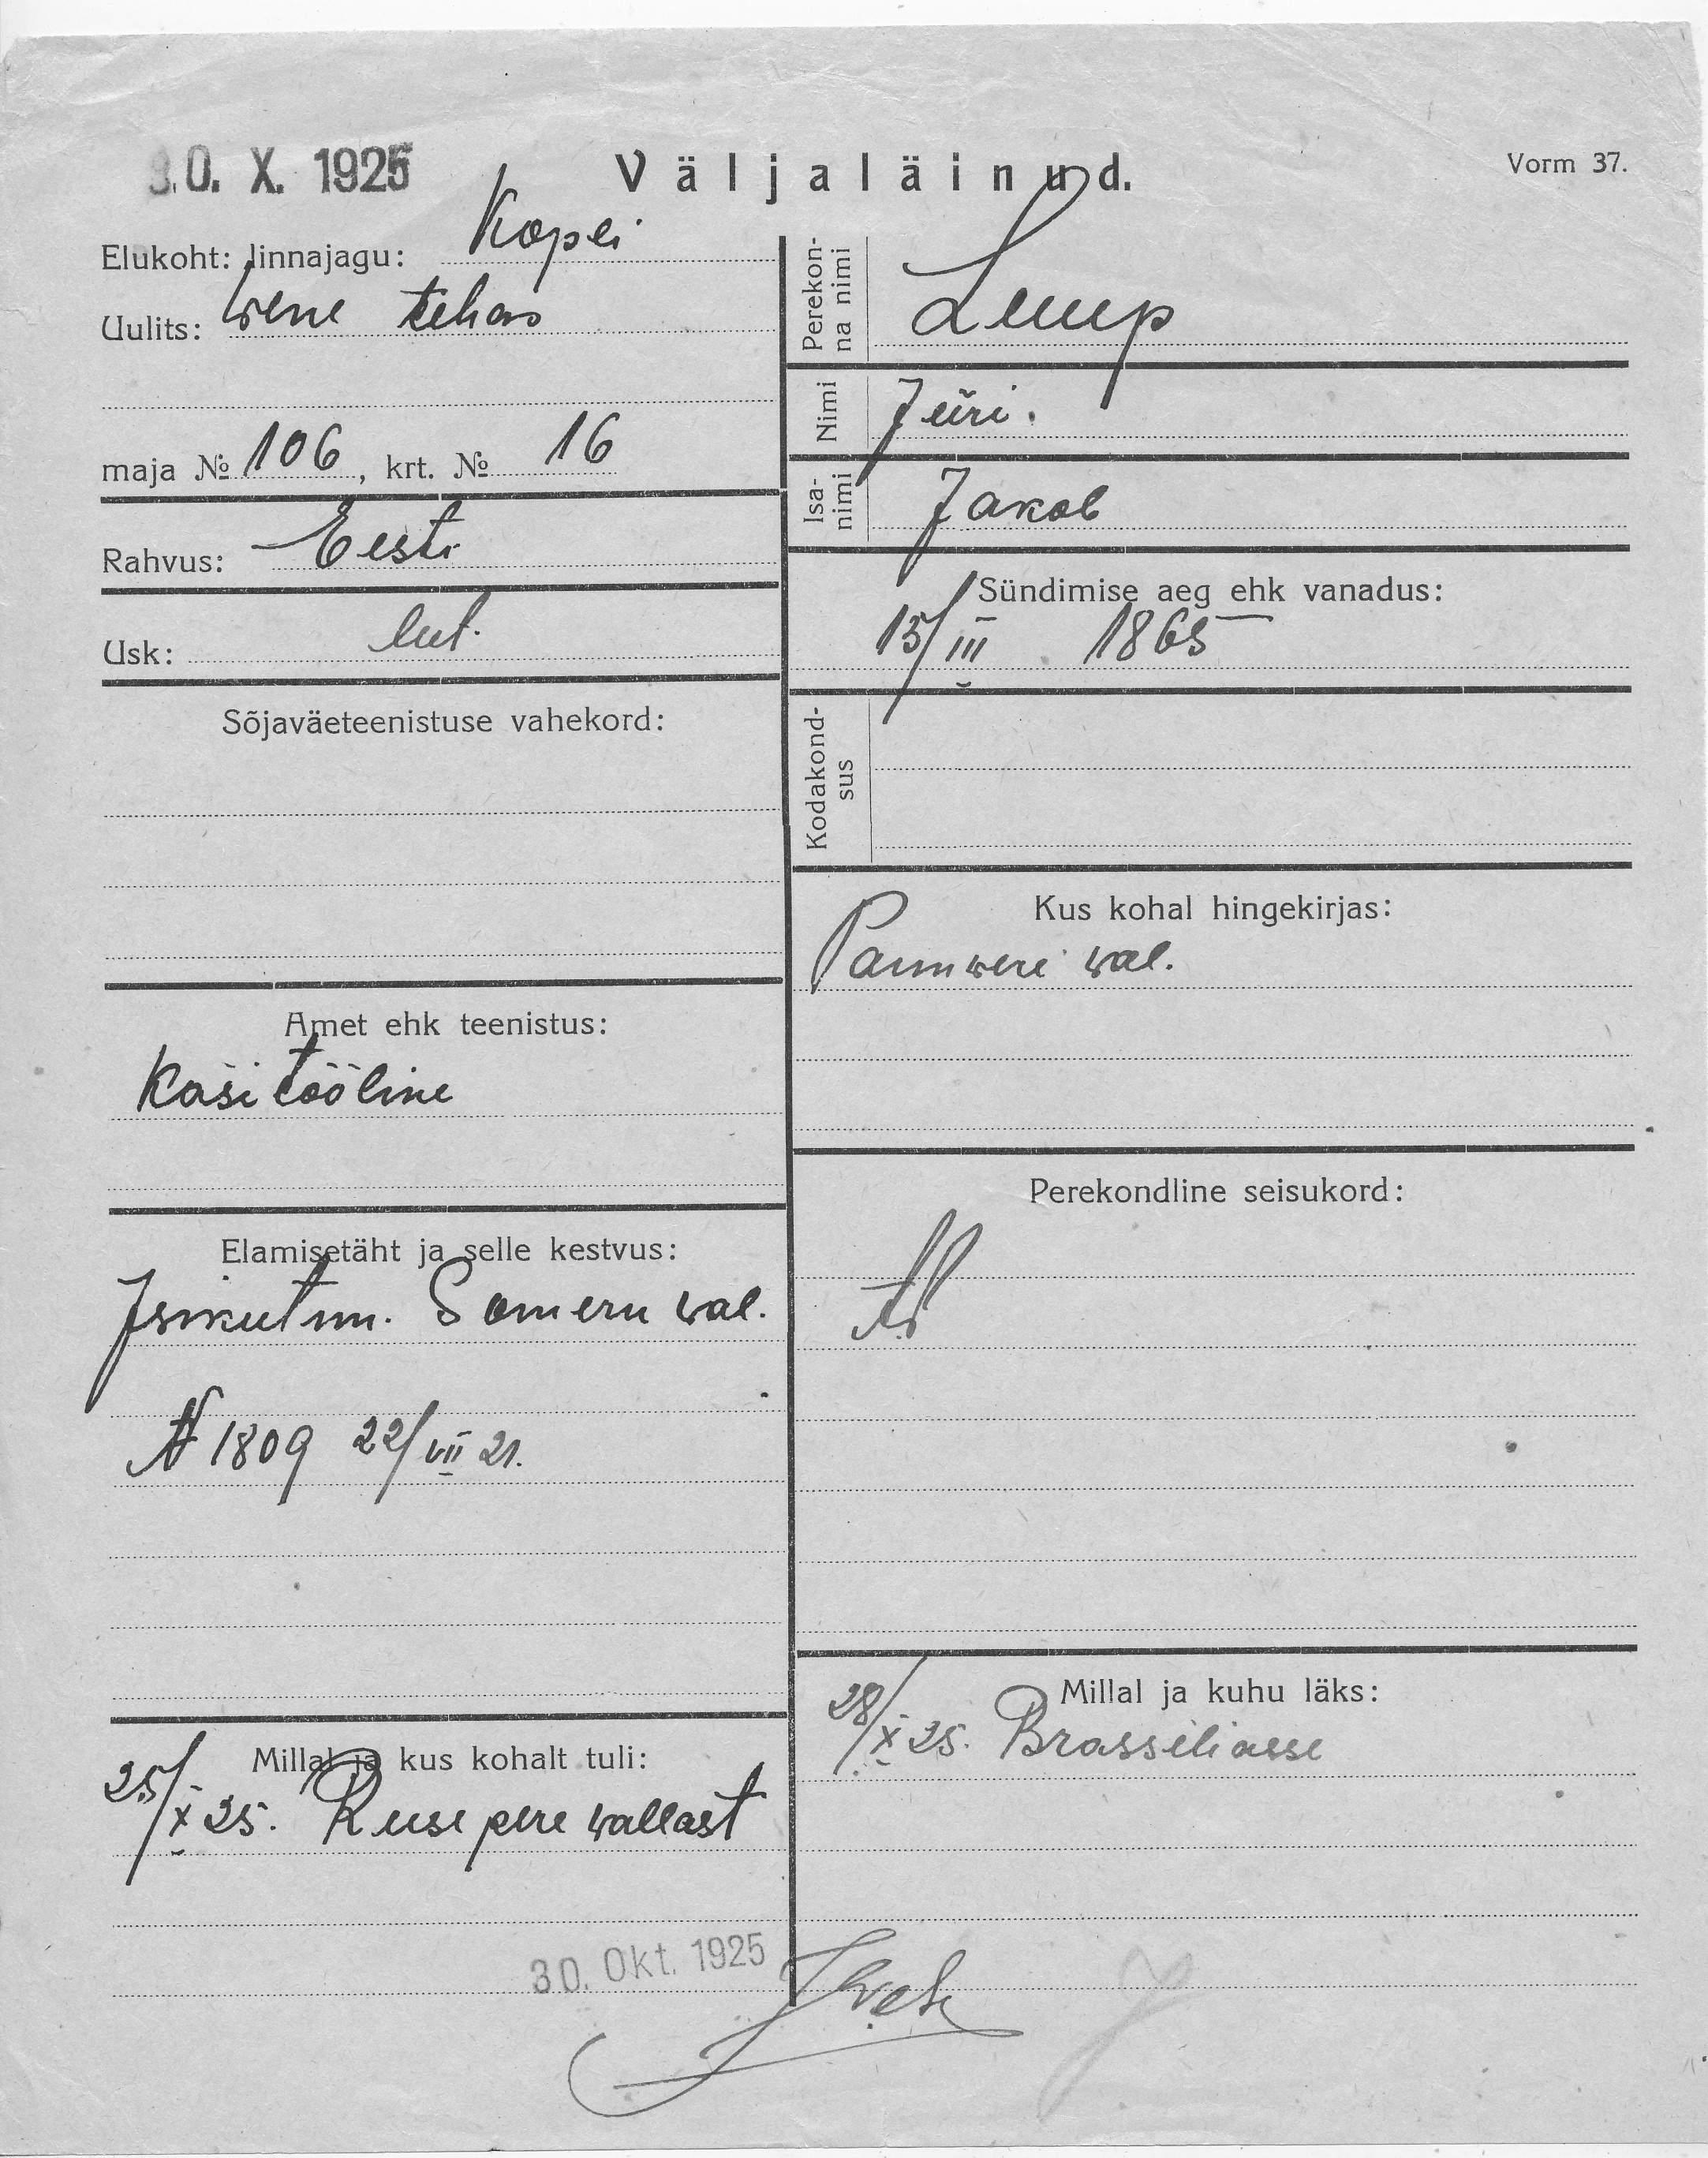 30. X. 1925
Väljaläinud.
Vorm 37.
Elukoht: linnajagu: Kopli
Uulits: Wene tehas
maja № 106, krt. № 16
Rahvus: Eesti
Usk: lut.
Sõjaväeteenistuse vahekord:
Amet ehk teenistus:
Käsitööline
Elamisetäht ja selle kestvus:
Isikutun. Someru wal.
N 1809 22/VII 21.
Millal ja kus kohalt tuli:
25/X 25. Kusepere wallast
30. Okt. 1925
Perekonna nimi
Nimi Jüri.
Isanimi Jakob
Sündimise aeg ehk vanadus:
15/III 1865
Kodakondsus
Kus kohal hingekirjas:
wal.
Perekondline seisukord:
Millal ja kuhu läks:
28/X 25. Brassiliasse